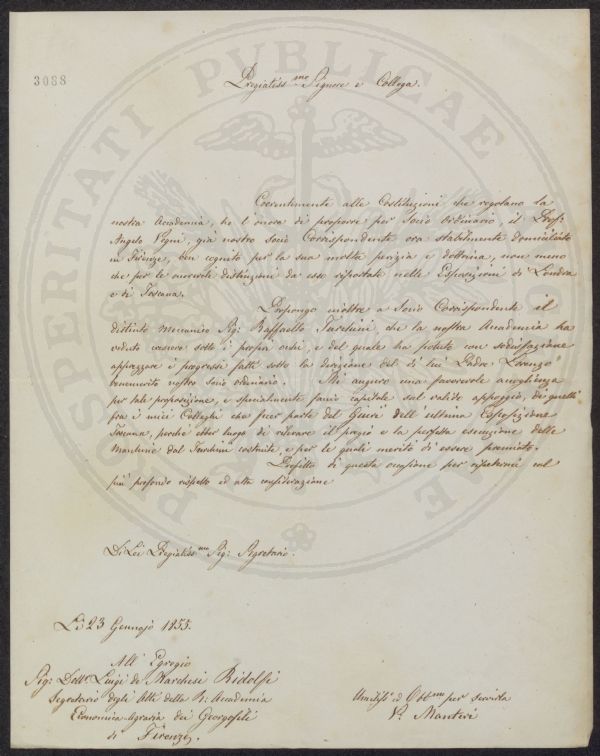 3088
Pregiatiss.mo Signore e Collega.
Coerentemente alle Costituzioni che regolano la
nostra Accademia, ho l'onore di proporre per Socio Ordinario, il Prof:
Angelo Vegni, già nostro Socio Corrispondente ora stabilmente domiciliato
in Firenze, ben cognito per la sua molta perizia e dottrina, non meno
che per le onorevoli distinzioni da esso riportate nelle Esposizioni di Londra
e di Toscana.
Propongo inoltre a Socio Corrispondente il
distinto Meccanico Sig: Raffaello Turchini, che la nostra Accademia ha
veduto crescere sotto i proprj occhi, e del quale ha potuto con sodisfazione
apprezzare i progressi fatti sotto la direzione del di lui Padre Lorenzo
benemerito nostro Socio ordinario. Mi auguro una favorevole accoglienza
per tale proposizione, e specialmente faccio capitale sul valido appoggio, di quelli
fra i miei Colleghi che fecer parte del Giurì dell'ultima Esposizione
Toscana, perchè ebber luogo di rilevare il pregio e la perfetta esecuzione delle
Macchine dal Turchini costruite, e per le quali meritò di essere premiato.
Profitto di questa occasione per ripetermi col
più profondo rispetto ed alta considerazione
Di Lei Pregiatiss.mo Sig: Segretario.
Lì 23 Gennajo 1855.
All' Egregio
Sig: Dott. Luigi de' Marchesi Ridolfi
Segretario degli Atti della R: Accademia
Economico-Agraria dei Georgofili
di Firenze.
Umiliss.o ed Obb.mo per servirla
V. Manteri
PROSPERITATI PUBLICAE